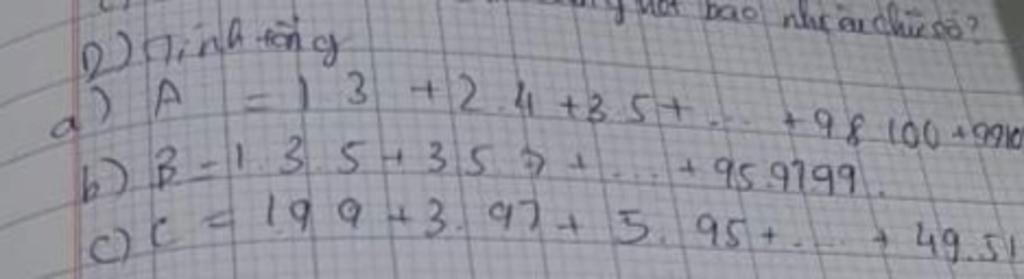 bao nhiêu chữ số?
2) Tính tổng
a) A = 1 3 + 2.4 + 3.5 + ... + 98 100 + 99 10
b) B = 1.3.5 + 3 5 7 + ... + 95.9799.
c) C = 1.99 + 3.97 + 5.95 + ... + 49.51